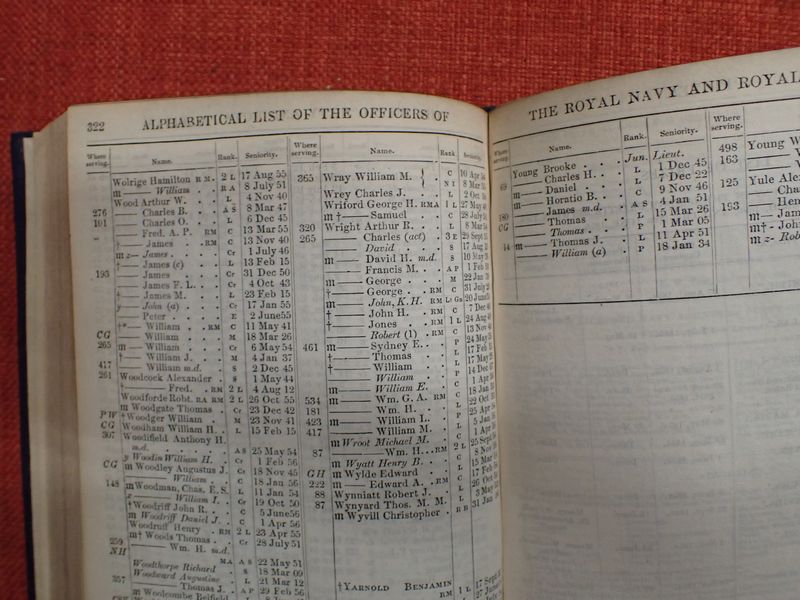 322 ALPHABETICAL LIST OF THE OFFICERS OF
Where serving. Name. Rank. Seniority.
Wolrige Hamilton R M . 2 L 17 Aug 55
m —— William . . R A 8 July 51
Wood Arthur W. . . L 4 Nov 40
276 —— Charles B. . . A S 8 Mar 47
101 —— Charles O. . . L 6 Dec 45
—— Fred. A. P. RM C 13 Mar 55
†—— James . . RM C 13 Nov 40
—— James . . . Cr 1 July 46
†—— James (c) . . L 13 Feb 15
195 —— James . . . Cr 31 Dec 50
—— James F. L. . Cr 4 Oct 43
†—— James M. . . L 23 Feb 15
—— John (a) . . Cr 17 Jan 55
—— Peter . . . E 2 June 55
—— William . . RM C 11 May 41
CG —— William . . M 18 Mar 26
265 m —— William . . Cr 6 May 54
†—— William J. . . M 4 Jan 37
417 —— William m.d. . S 2 Dec 45
261 Woodcock Alexander . S 1 May 44
†—— Fred. . RM 2 L 4 Aug 12
Woodforde Robt. RA RM 2 L 26 Oct 55
m Woodgate Thomas . Cr 23 Dec 42
PW †*Woodger William . M 23 Nov 41
CG Woodham William H. . L 15 Feb 15
307 Woodifield Anthony H.
m.d. . . . . . A S 25 May 54
Woodin William H. . Cr 1 Feb 56
CG m Woodley Augustus J. Cr 18 Nov 45
—— William . . C 18 Jan 56
148 m Woodman, Chas. E. S. L 11 Jan 54
—— William I. . Cr 19 Oct 50
†Woodriff John R. . . C 5 June 56
m Woodriff Daniel J. . C 1 Apr 56
Woodruff Henry . RM 2 L 23 Apr 55
m† Woods Thomas . . Cr 28 July 51
259 —— Wm. H. m.d.
NH MA A S 22 May 51
Woodthorpe Richard S 18 Mar 09
Woodward Augustine . L 21 Mar 12
357 —— Thomas J. . A P 29 Feb 56
m Woolcombe
Where serving. Name. Rank Seniority.
365 Wray William M. } C 10 Apr
N I 8 Mar
Wrey Charles J. . L 2 Oct
Wriford George H. RMA 1 L 27 May
m †—— Samuel . C 28 July
320 Wright Arthur R. . . L 8 Mar
265 —— Charles (act) . 3 E 29 Sept
—— David . . . S 17 Aug
m —— David H. m.d. S 10 May
—— Francis M. . A P 1 Feb
m —— George . . . M 22 Jan
†—— George . . RM C 31 July
m —— John, K. H. RM Lt Gn 20 June
†—— John H. . RM C 7 Dec
†—— Jones . . RM 1 L 24 Aug
—— Robert (1) . RM C 13 Nov
461 m —— Sydney E. . . P 24 May
†—— Thomas . . L 17 Feb
†—— William . . L 17 May
—— William . . P 14 Dec
m —— William E. . C 1 Apr
534 m —— Wm. G. A. RM C 18 Jan
181 —— Wm. H. . . L 22 Oct
423 m —— William L. . P 25 Apr
417 —— William M. . L 5 Jan
m Wroot Michael M. . C 1 Apr
87 —— Wm. H. . . RM 2 L 25 Sept
m Wyatt Henry B. . . C 8 Nov
GH m Wylde Edward . . C 15 Mar
222 m —— Edward A. . RM C 17 Feb
88 Wynniatt Robert J. . L 26 Oct
87 Wynyard Thos. M. M. L 3 May
m Wyvill Christopher . R B 31 Jan
†YARNOLD BENJAMIN
RM 1 L 17 Sept
THE ROYAL NAVY AND ROYAL
Where serving. Name. Rank. Seniority.
Jun. Lieut.
69 Young Brooke . . . L 1 Dec 45
—— Charles H. . . L 7 Dec 22
—— Daniel . . . C 9 Nov 46
—— Horatio B. . . L 4 Jan 51
180 —— James m.d. . A S 15 Mar 26
CG —— Thomas . . L 1 Mar 05
—— Thomas . . P
14 m —— Thomas J. . L 11 Apr 51
—— William (a) . P 18 Jan 34
Where serving.
498 Young
163
125 Yule
193